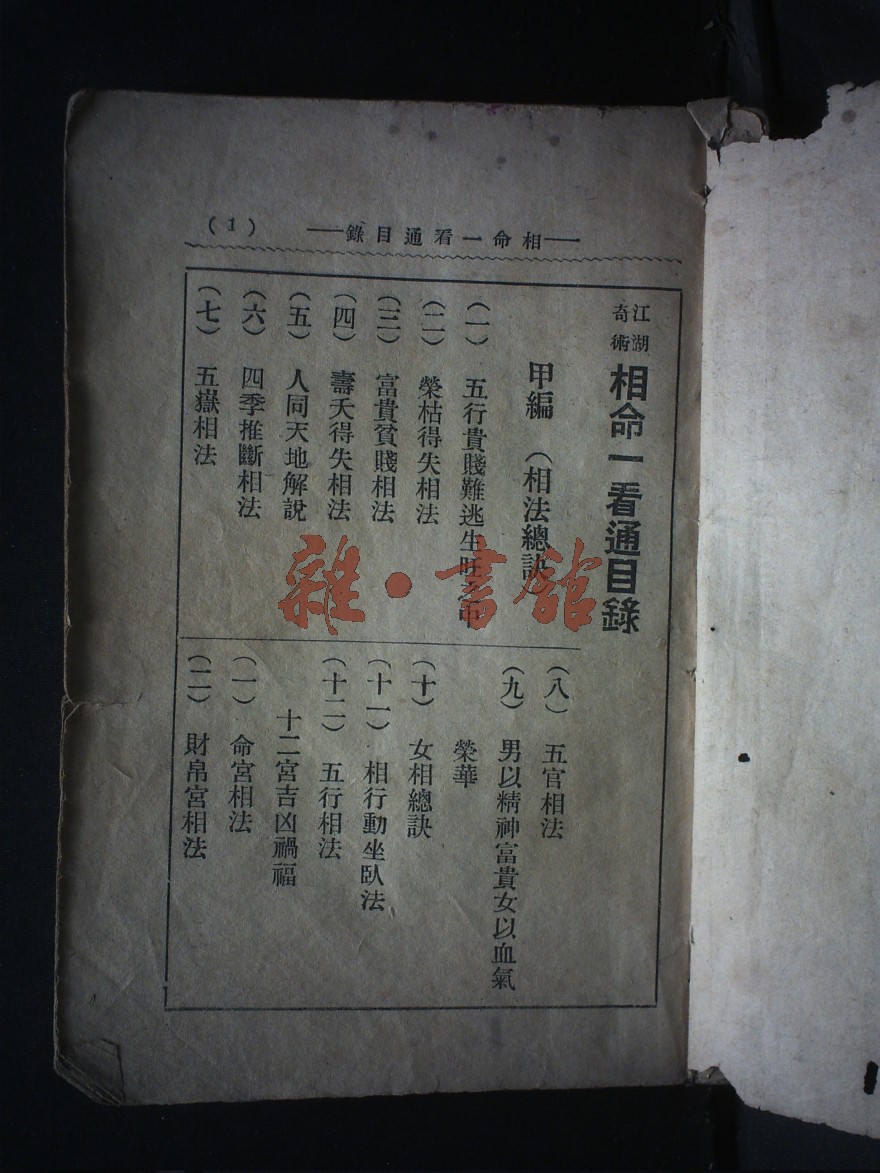 (1)
——相命一看通目錄——
江湖奇術
相命一看通目錄
甲編　（相法總訣
（一）　五行貴賤難逃生旺之中
（二）　榮枯得失相法
（三）　富貴貧賤相法
（四）　壽夭得失相法
（五）　人同天地解說
（六）　四季推斷相法
（七）　五嶽相法
（八）　五官相法
（九）　男以精神富貴女以血氣
榮華
（十）　女相總訣
（十一）　相行動坐臥法
（十二）　五行相法
十二宮吉凶禍福
（一）　命宮相法
（二）　財帛宮相法
雜·書館